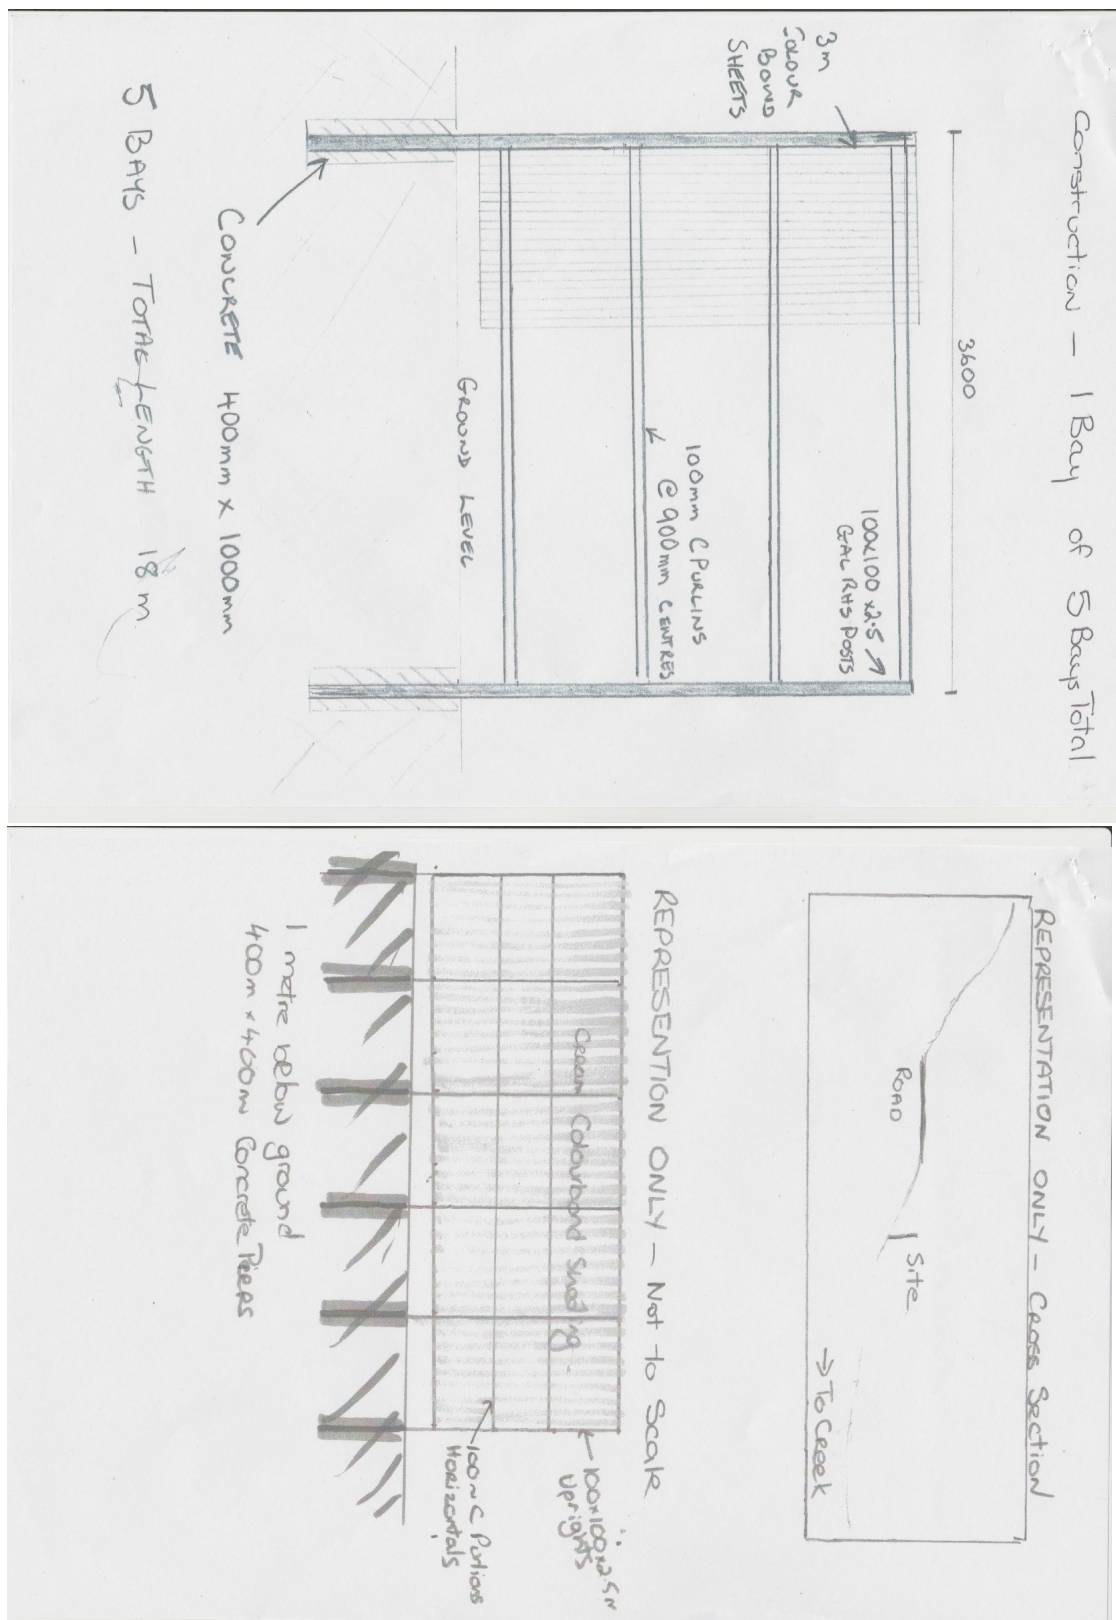 Construction - 1 Bay of 5 Bays Total
3600
3m
COLOUR
BOND
SHEETS
100x100 x2.5
GAL RHS POSTS
100mm C PURLINS
@ 900mm CENTRES
GROUND LEVEL
CONCRETE 400mm x 1000mm
5 BAYS - TOTAL LENGTH 18m
REPRESENTATION ONLY - CROSS SECTION
ROAD
Site
→ To Creek
REPRESENTION ONLY - Not to Scale
Cream Colourbond Sheeting
100x100x2.5m
Uprights
100m C Purlions
Horizontals
1 metre below ground
400m x 400m Concrete Pieers